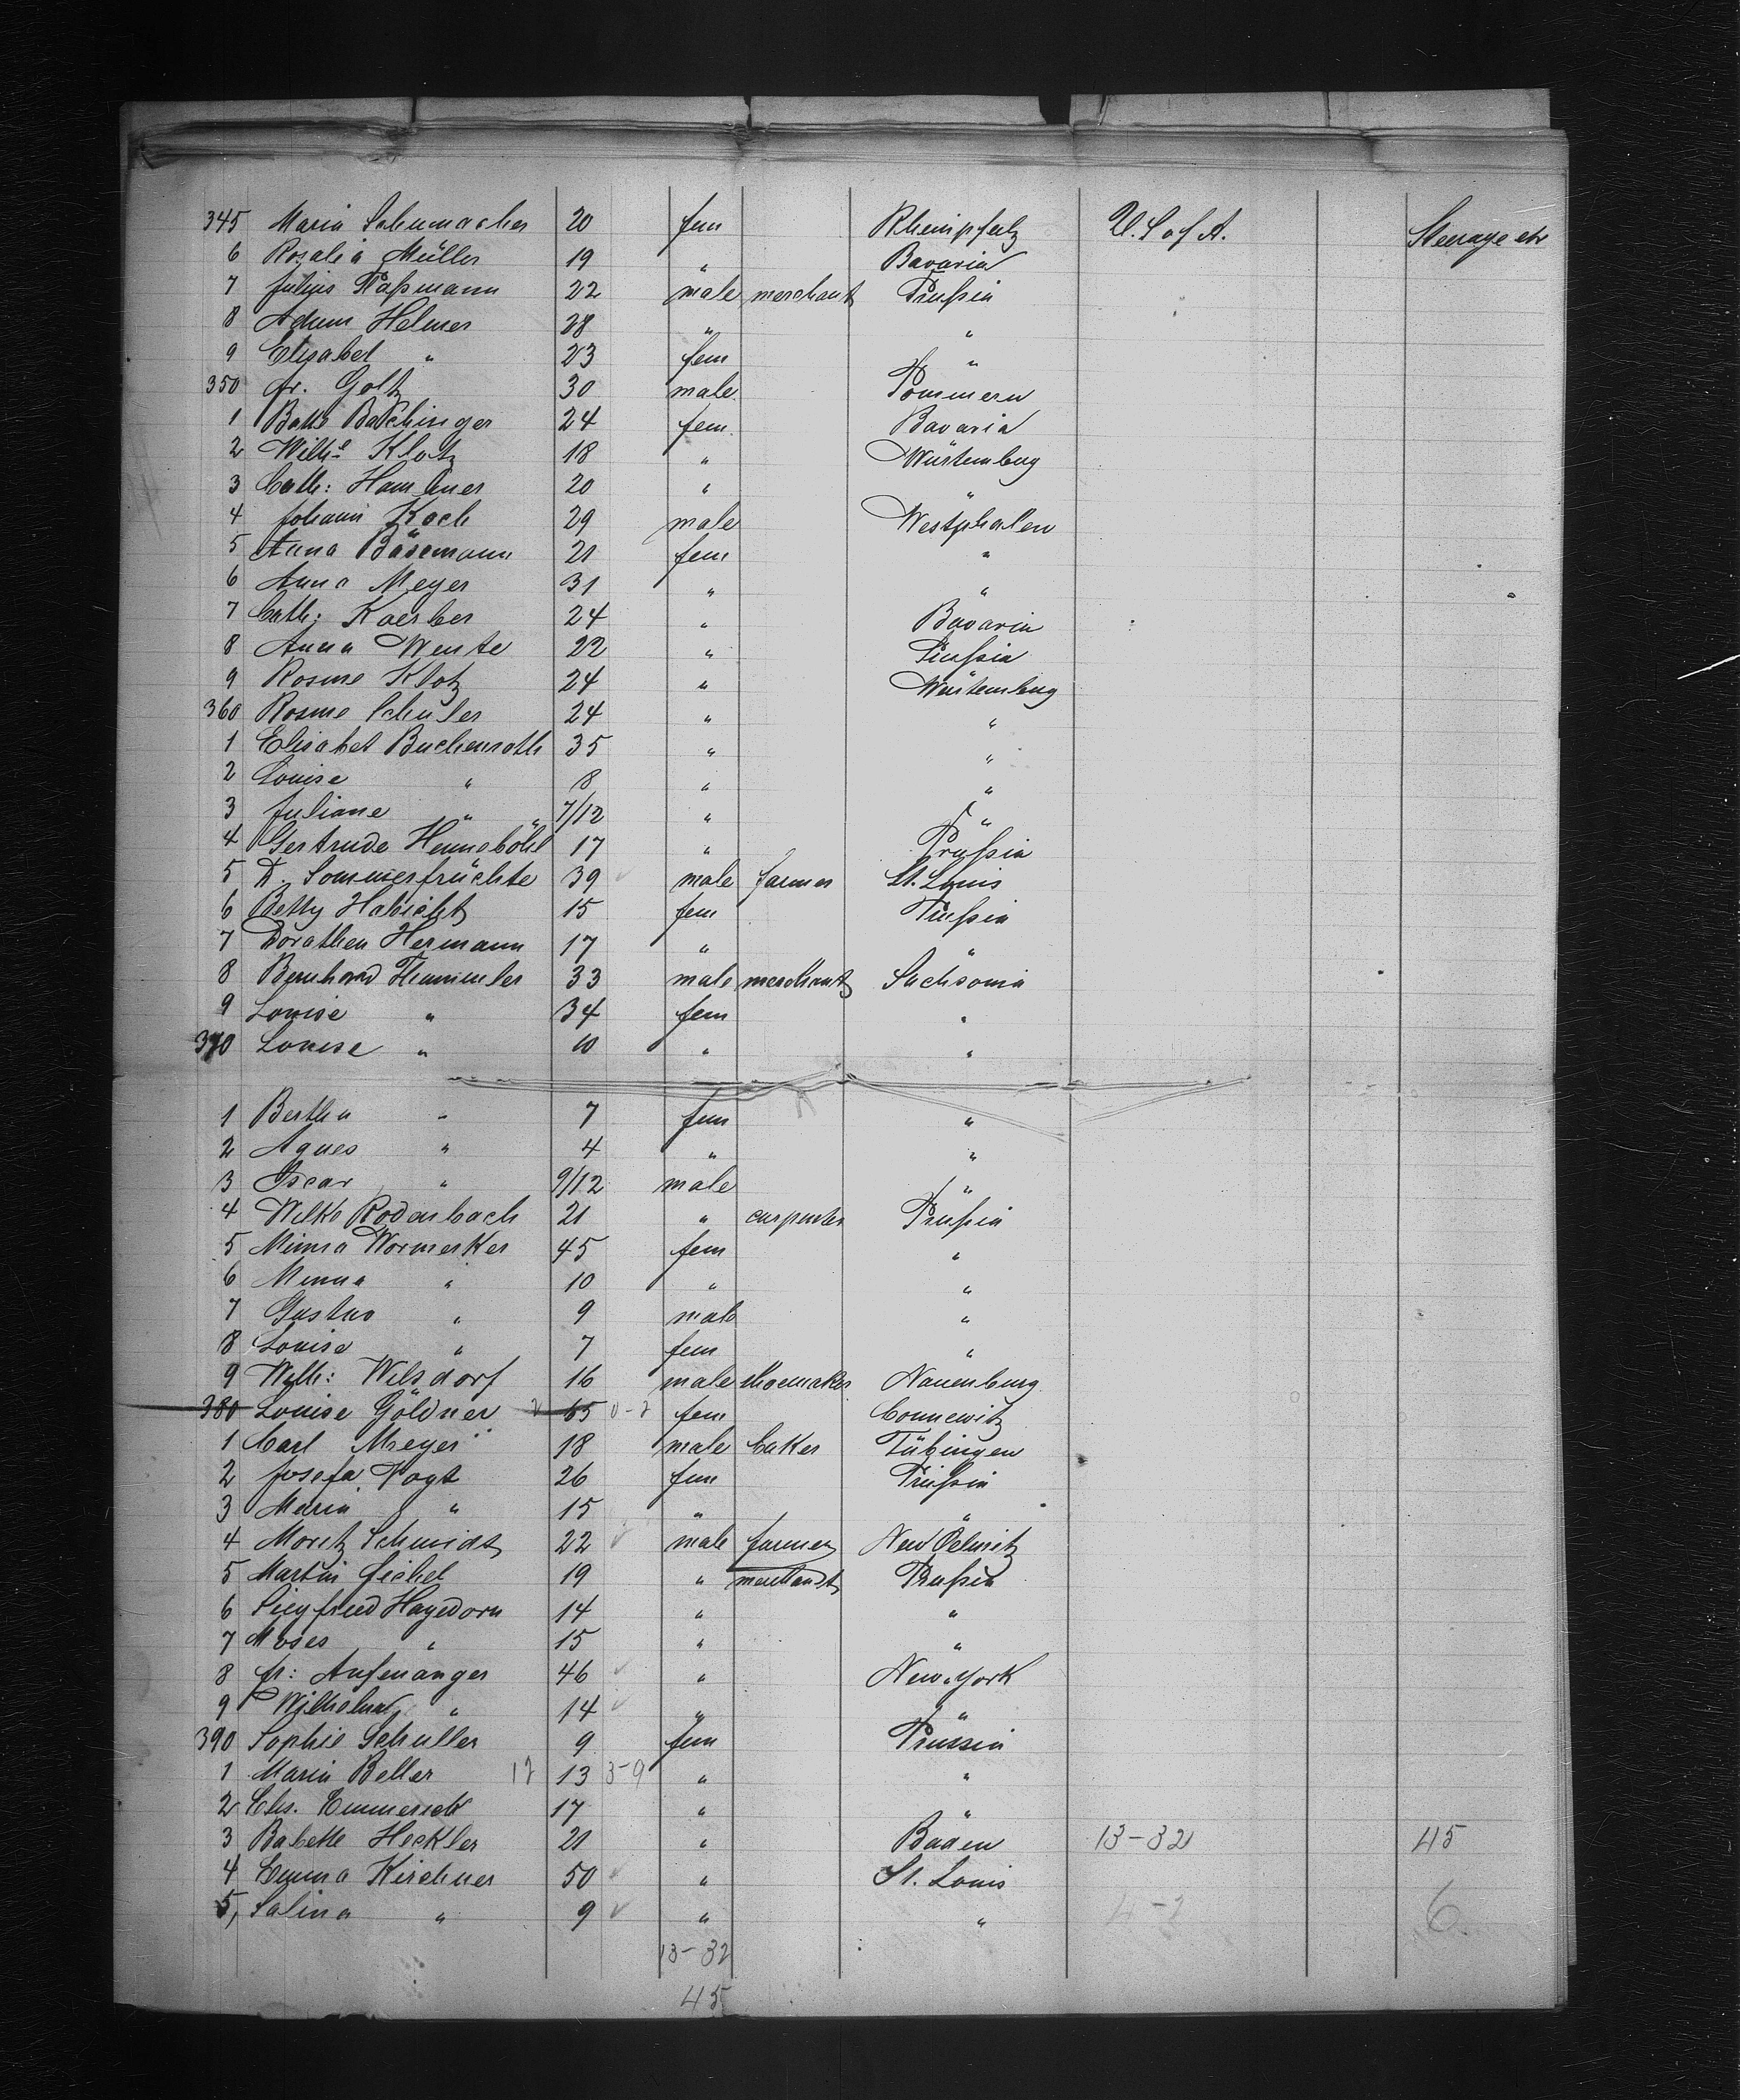 345 Maria Schumacher 20 fem Rheinpfalz U.S. of A. Steerage etr
6 Rosalia Müller 19 " Bavaria
7 Julius Paßmann 22 male merchant Prußia
8 Adam Helmer 28 " "
9 Elisabet " 23 fem "
350 Fr. Goltz 30 male Pommern
1 24 fem Bavaria
2 Wilhe Klotz 18 " Würtemberg
3 Cath: 20 " "
4 Johann Koch 29 male Westphalen
5 Anna Bäsemann 21 fem "
6 Anna Meyer 31 " "
7 Cath: Koerber 24 " Bavaria
8 Anna Wente 22 " Prußia
9 Rosine Klotz 24 " Würtemberg
360 Rosine Schuler 24 " "
1 Elisabet Buchenroth 35 " "
2 Louise " 8 " "
3 Juliane " " 7/12 " "
4 Gertrude 17 " Prußia
5 D. Sommerfrüchte 39 male farmer St. Louis
6 Betty Habicht 15 fem Prußia
7 Dorathea Hermann 17 " "
8 Bernhard 33 male merchant Sachsonia
9 Louise " 34 fem "
370 Louise " 10 " "
1 Bertha " 7 fem "
2 Agnes " 4 " "
3 Oscar " 9/12 male "
4 Wilko Rodenbach 21 " carpenter Prußia
5 Minna Wormerker 45 fem "
6 Minna " 10 " "
7 Gustav " 9 male "
8 Louise " 7 fem "
9 Wilh: Wilsdorf 16 male shoemaker Nauenburg
380 Louise Göldner 65 fem Connewitz
1 Carl Meyer 18 male baker Tübingen
2 Josefa Vogt 26 fem Prußia
3 Maria " 15 " "
4 Moritz Schmidt 22 male farmer New Oelsnitz
5 Martin Eichel 19 " merchandt Prußia
6 Siegfried Hagedorn 14 " "
7 Moses " 15 " "
8 Fr: Aufenanger 46 " New-York
9 Wilhelm " 14 " "
390 Sophie Schuller 9 fem Prussia
1 Maria Beller 12 13 3-9 " "
2 Chs. Emmerich 17 " "
3 Babette Heckler 21 " Baden 13-32 45
4 Emma Kirchner 50 " St. Louis
5, Salina " 9 " " 4-2 6
13-32
45